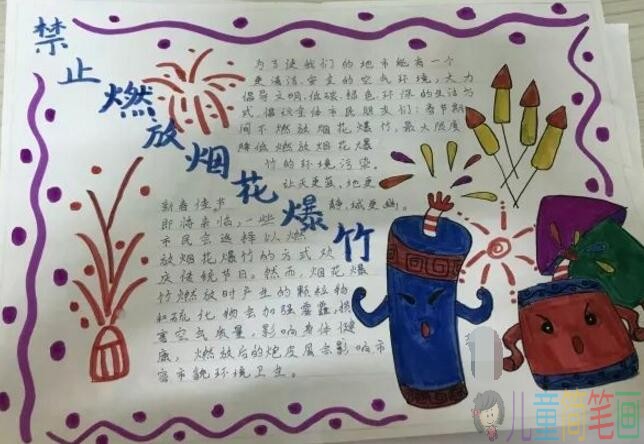 禁止燃放烟花爆竹
为了使我们的城市能有一个
更清洁、安全的空气环境,大力
倡导文明、低碳、绿色、环保的生活方
式,倡议全体市民朋友们:春节期
间不燃放烟花爆竹,最大限度
降低燃放烟花爆
竹的环境污染
让天更蓝、地更
静,城更幽。
新春佳节
即将来临,一些
市民会选择以燃
放烟花爆竹的方式欢
庆传统节日。然而,烟花爆
竹燃放时产生的颗粒物
和硫化物会加强雾霾,损
害空气质量,影响身体健
康,燃放后的炮皮屑会影响市
容市貌环境卫生。
儿童简笔画